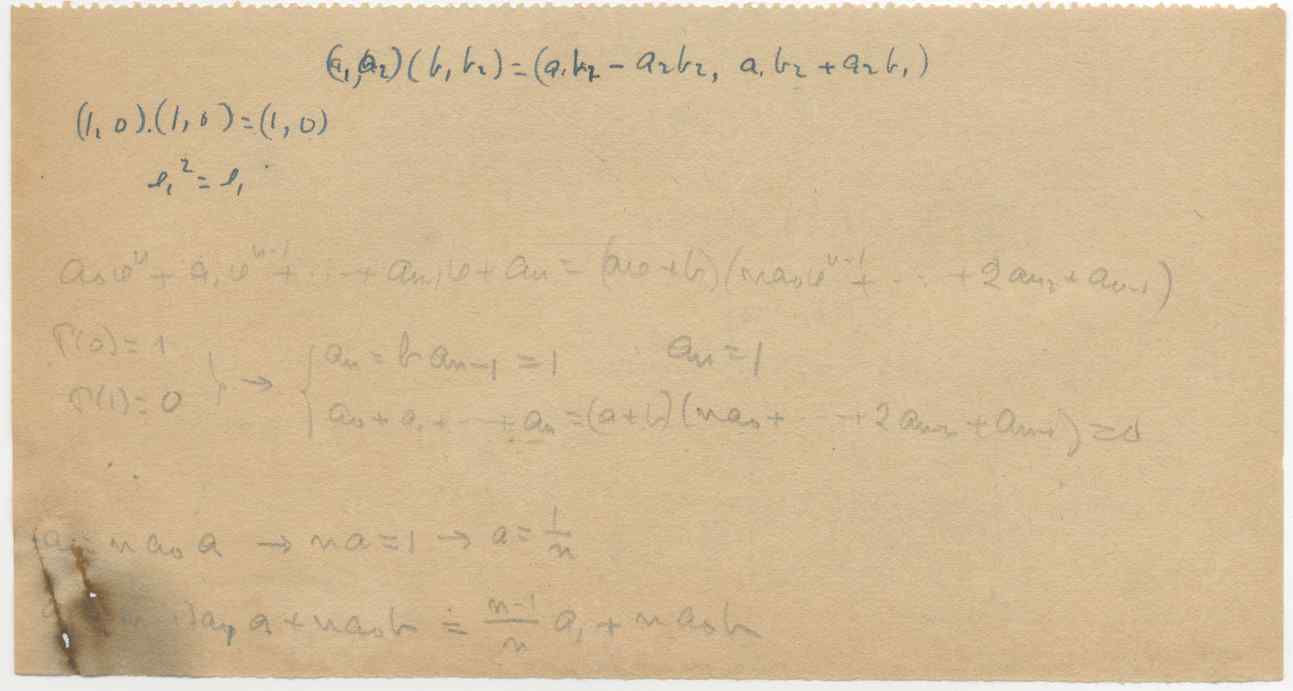 (a₁, a₂)(b₁ b₂) = (a₁b₂ - a₂b₂, a₁b₂ + a₂b₁)
(1, 0).(1, 0) = (1, 0)
e₁² = e₁
a₀φⁿ + a₁φⁿ⁻¹ + ... + aₙ₋₁φ + aₙ = (aφ + b)(na₀φⁿ⁻¹ + ... + 2aₙ₋₂ + aₙ₋₁)
P(0) = 1
P(1) = 0 } → { aₙ = b aₙ₋₁ = 1 aₙ = 1
a₀ + a₁ + ... + aₙ = (a + b)(na₀ + ... + 2aₙ₋₂ + aₙ₋₁) = 0
na₀a → na = 1 → a = 1/n
a + na₀b = n-1/n a₁ + na₀b